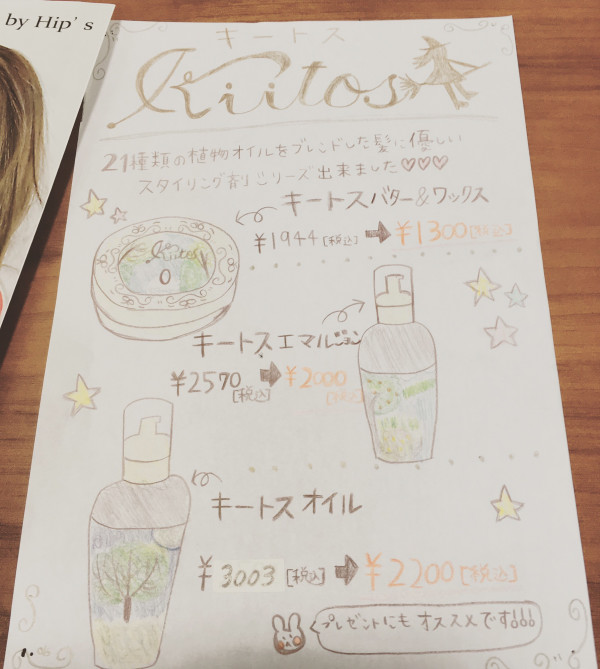 by Hip's
キートス
Kiitos
21種類の植物オイルをブレンドした髪に優しい
スタイリング剤シリーズ出来ました♡♡♡
キートスバター&ワックス
¥1944[税込]➡¥1300[税込]
Kiitos
キートスエマルジョン
¥2570[税込]➡¥2000[税込]
キートスオイル
¥3003[税込]➡¥2200[税込]
プレゼントにもオススメです!!!